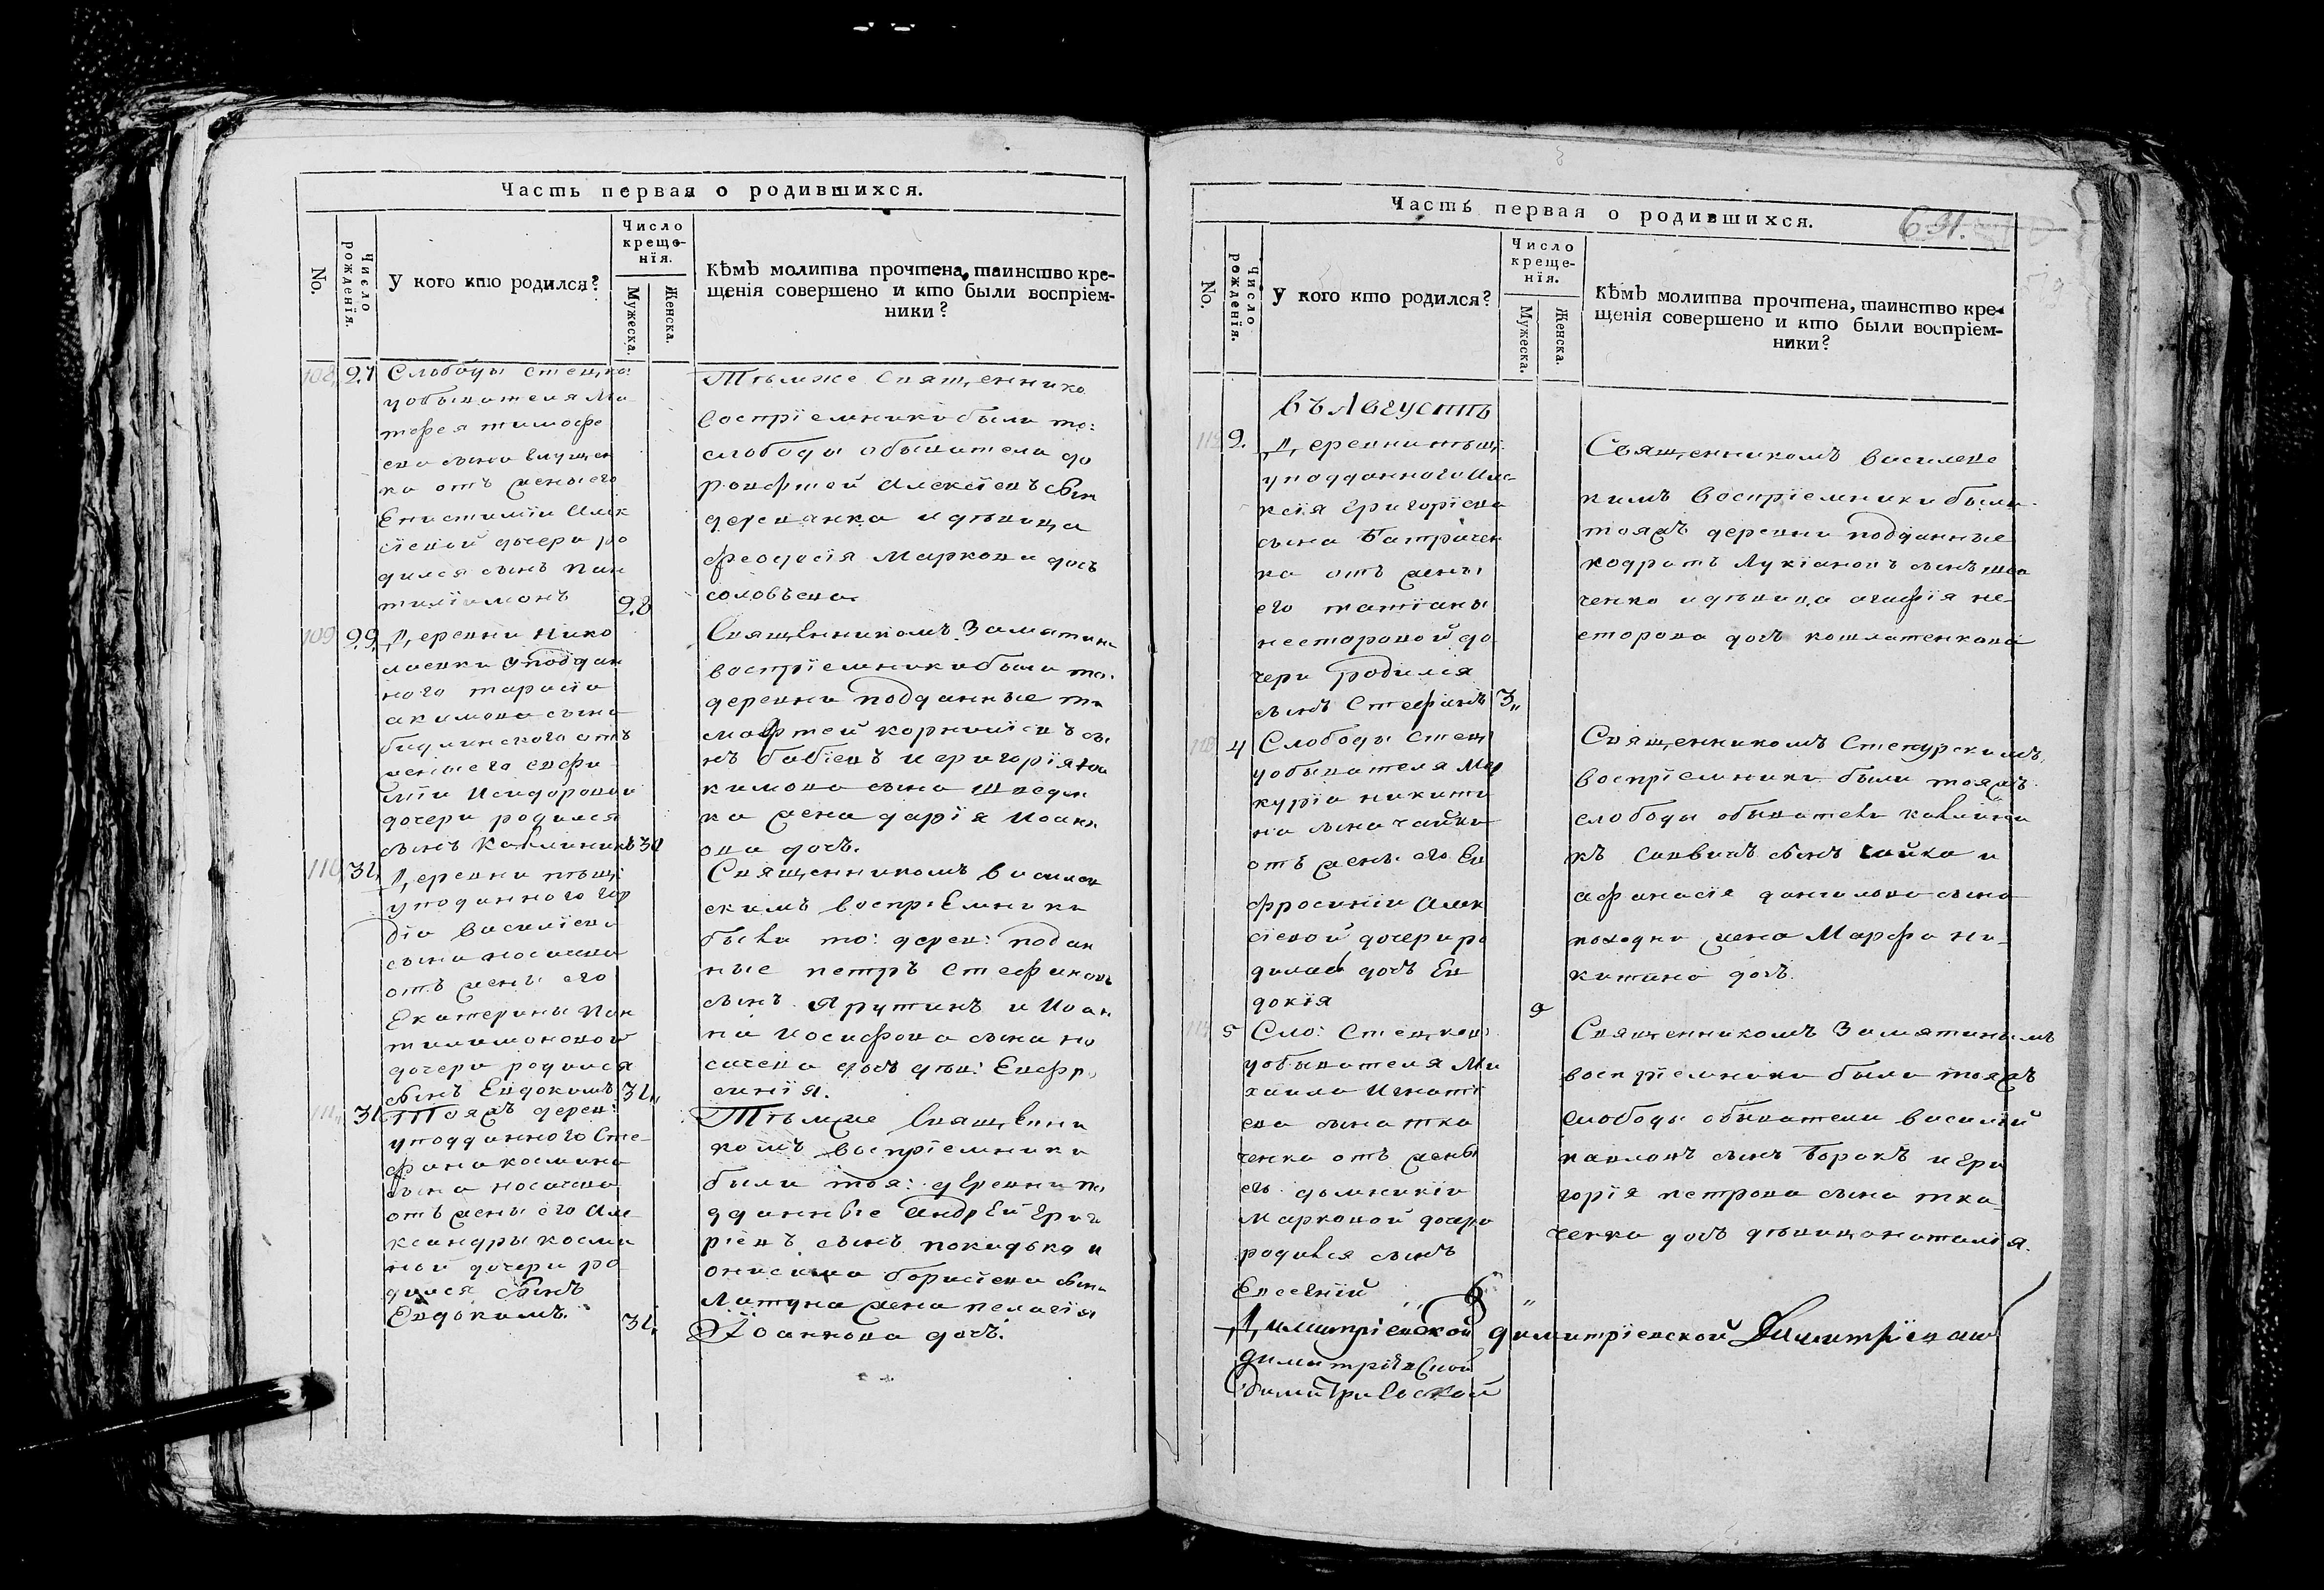 Часть первая о родившихся.
No.
Число рожденія.
У кого кто родился?
Число
креще-
нія.
Мужеска.
Женска.
Кѣмъ молитва прочтена, таинство кре-
щенія совершено и кто были воспріем-
ники?
108 27 Слободы Стецко:
уобывателя Ма
тфея тимофе
ева сына
ка отъ жены его
Епистиміи Алек
сіевой дочери ро
дился сынъ Пан
тилімонъ 28
Тѣмже Священнико
воспріемники были то:
слободы обыватели до
рофтей Алексіевъ сын
деревянка и дѣвица
феодосія Маркова дочъ
соловьева.
109 29 Деревни Нико
лаевки уподдан
ного тарасія
акимова сына
отъ
жены его евфи
міи Исидоровой
дочери родился
сынъ Каллиникъ 30
Священникомъ Замятини
воспріемники были то:
деревни подданные ти
мофтей корниліевъ сы
нъ бабіевъ и григорія
кимова сына шведен
ка жена дарія Иоанн
ова дочъ.
110 31 Деревни пѣщ:
уподанного гор
дія Василіева
сына носачева
отъ жены его
Екатерины Пан
тилимоновой
дочери родился
сынъ Евдокимъ 31
Священникомъ Василев
скимъ воспріемники
были то: дерев: подан
ные петръ Стефановъ
сынъ Ярутинъ и Иоан
на иосифова сына но
сачева дочъ дѣв: Евфро
синія.
111 31 Тояжъ дерев:
уподданного Сте-
фана космина
сына носачева
отъ жены его Але
ксандры косми
ной дочери ро
дился сынъ
Евдокимъ. 31
Тѣмже Священни
комъ воспріемники
были тоя: деревни по
дданные Андрей Григо
ріевъ сынъ покидько и
онисима борисіева сына
латуна жена пелагія
Іоаннова дочъ.
Часть первая о родившихся.
631.
No.
Число рожденія.
У кого кто родился?
Число
креще-
нія.
Мужеска.
Женска.
Кѣмъ молитва прочтена, таинство кре-
щенія совершено и кто были воспріем-
ники?
въ Августѣ
112 2. Деревни пѣщ:
уподданного Але
ксія Григоріева
сына Батрачен
ка отъ жены
его татіаны
несторовой до
чери родился
сынъ Стефанъ 3
Священникомъ василевс
кимъ воспріемники были
тояжъ деревни подданные
кодратъ Лукіановъ сынъ шев
ченко и дѣвица агафія не-
сторова дочъ кошлатенкова
4 Слободы Стец:
уобывателя Мер
курія никити
на сына чайки
отъ жены его Ев
фросиніи Алек
сіевой дочери ро
дилась дочъ Ев
докія 9
Священникомъ Степурскимъ
воспріемники были тояжъ
слободы обыватели каллини
къ саввинъ сынъ чайка и
афанасія даниилова сына
походни жена Марфа ни-
китина дочъ.
5 Сло: Стецков:
уобывателя Ми
хаила Игнаті
ева сына тка
ченка отъ жены
его домникіи
Марковой дочери
родился сынъ
Евсевній 6
Священникомъ Замятинымъ
воспріемники были тояжъ
слободы обыватели василій
павловъ сынъ борокъ и гри
горія петрова сына тка-
ченка дочъ дѣвица наталія.
Димитріевской димитріевской Димитріевской
димитріевской
димитріевской